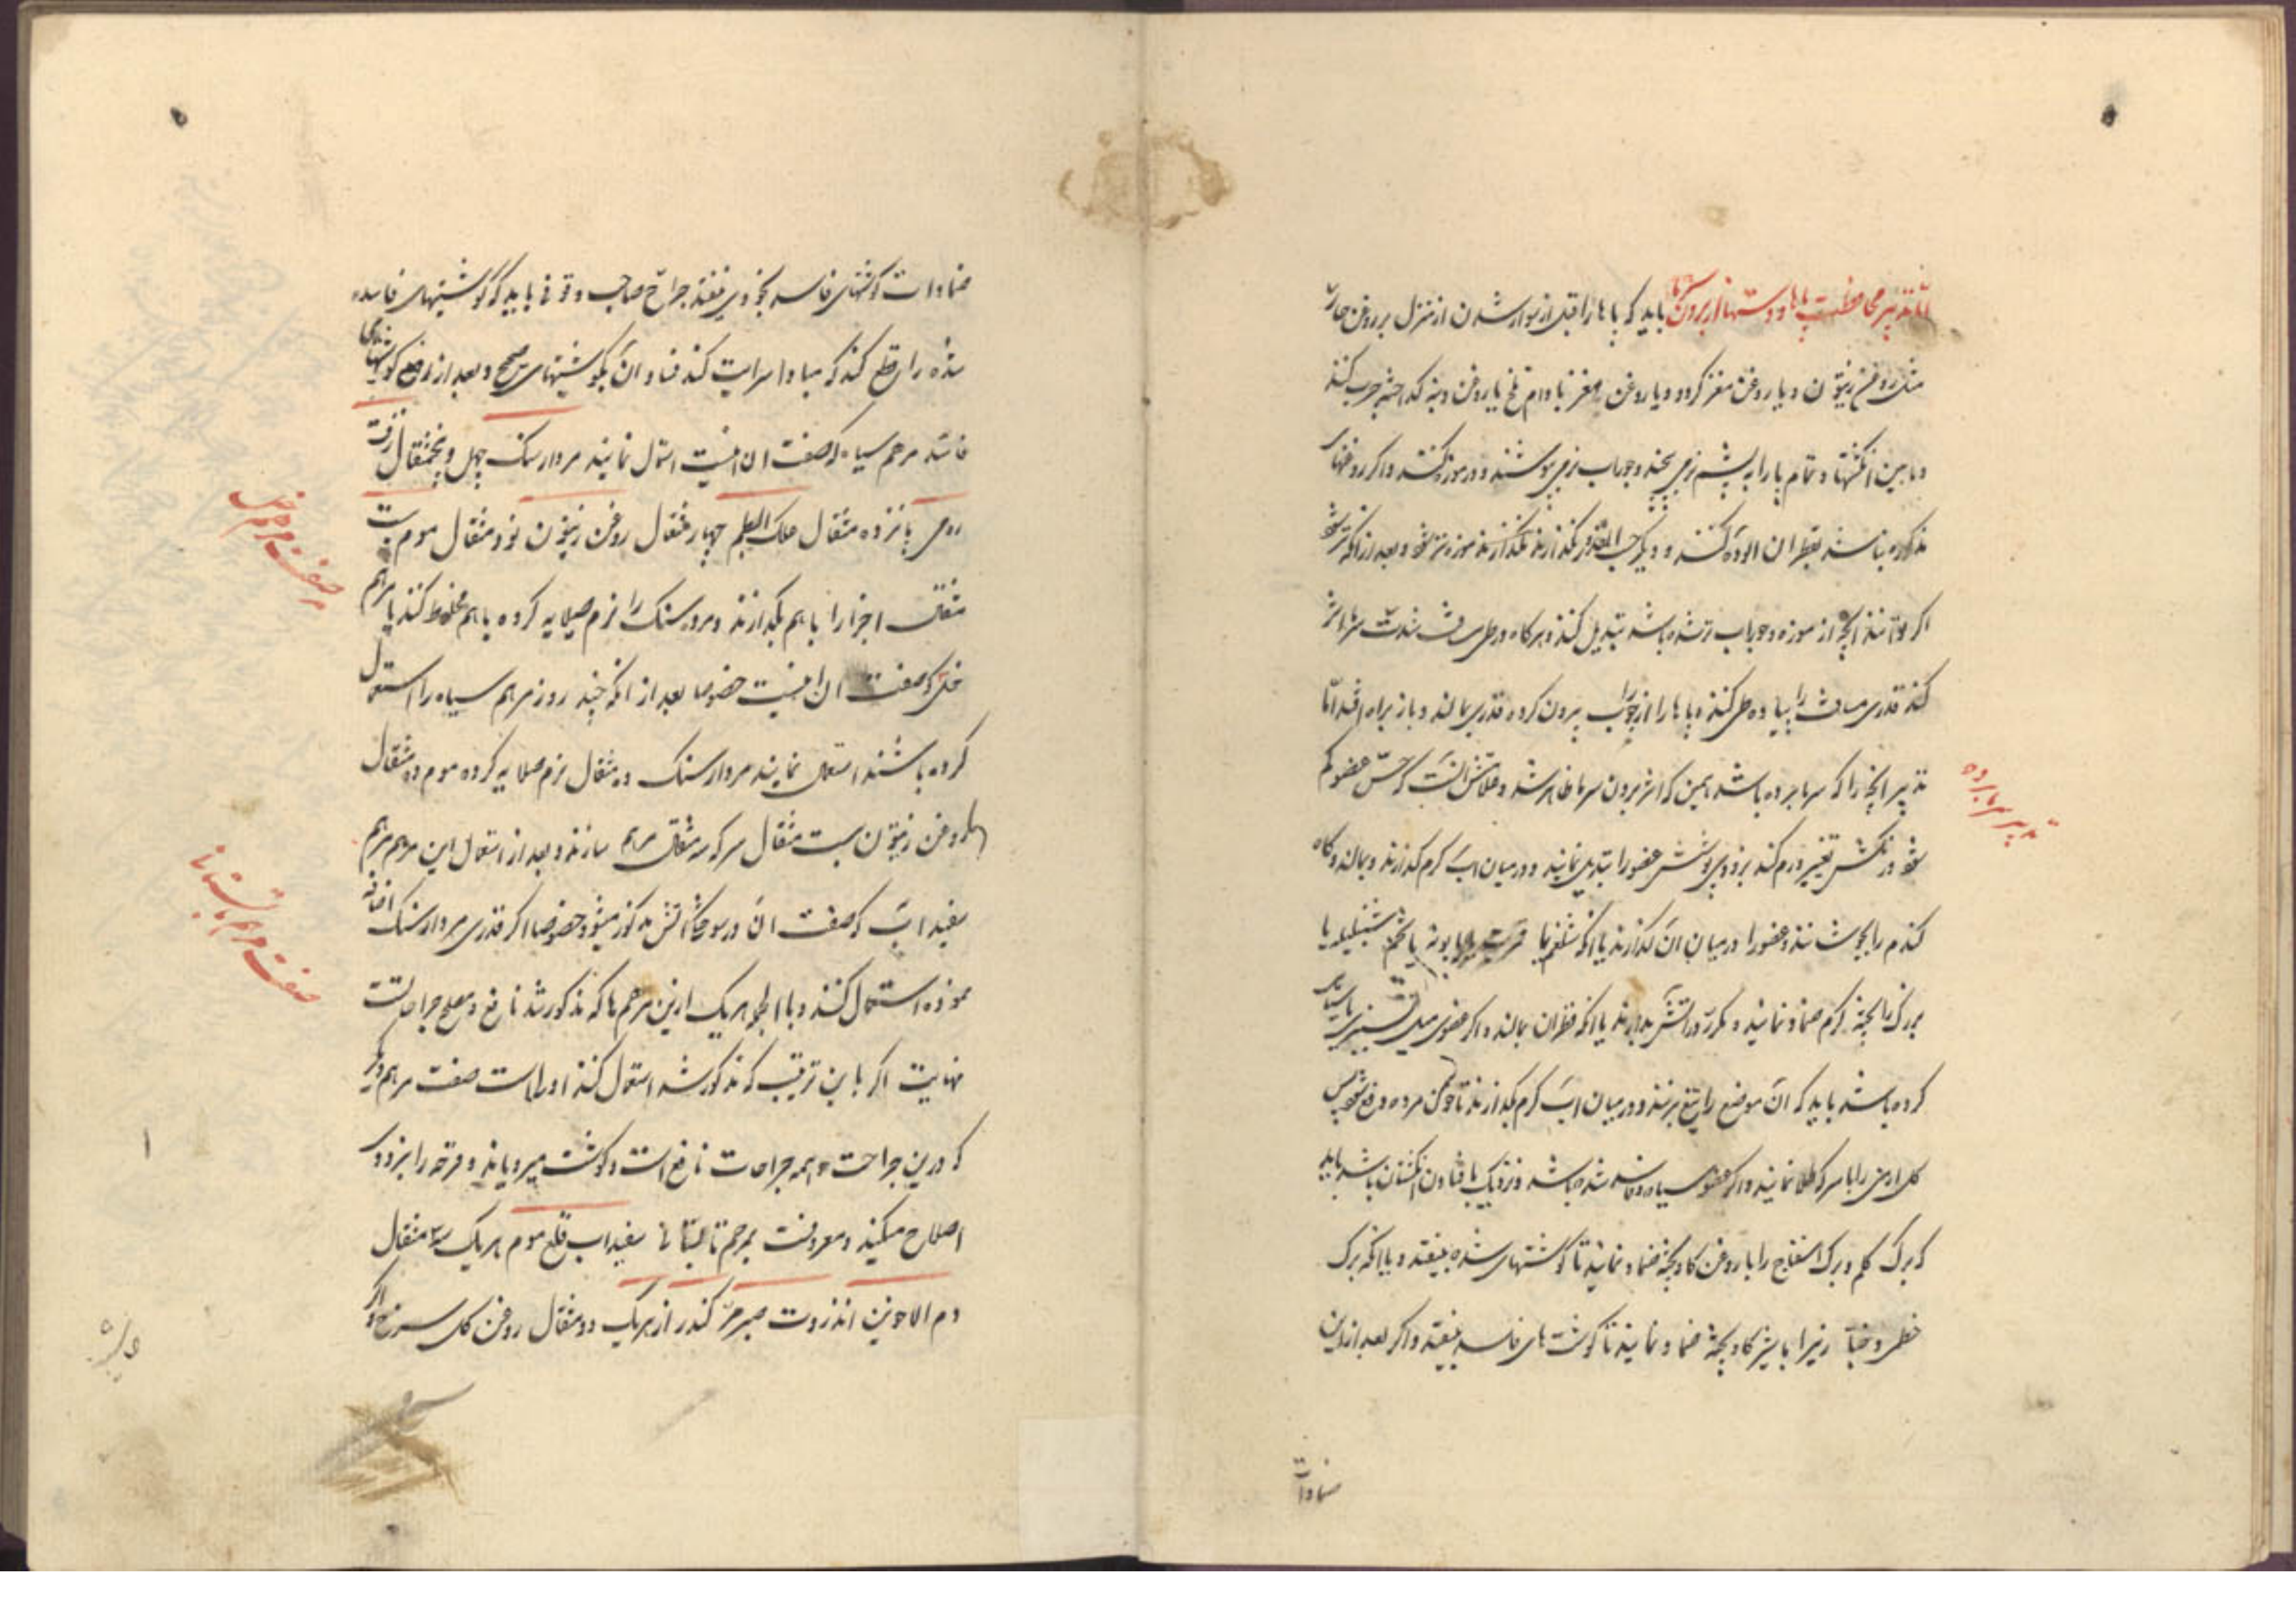 اما تدبیر محافظت پاها و دستها از بردن سرما باید که پاها را قبل از سوار شدن از منزل بروغن حارّ
مثل روغن زیتون و یا روغن مغز کردو و یا روغن مغز بادام تلخ یا روغن دنبه کداخته چرب کنند
و مابین انکشتها و تمام پا را به پشم نرمی پیچند و جوراب نرمی پوشند و در موزه کنند و اکر روغنهای
مذکوره نباشد بقطران الوده کنند و دیکر حسب المقدور نکذارند موزه تر شود و بعد از انکه تر شود
اکر توانند انچه از موزه و جوراب تر شده باشد تبدیل کنند و هرکاه در طی مسافت شدت سرما اثر
کند قدری مسافت را پیاده طی کنند و پاها را از جوراب بیرون کرده قدری بمالند و باز براه افتد اما
تدبیر انچه را که سرما برده باشد همین که اثر بردن سرما ظاهر شد و علامتش انست که حس عضو کم
شود و رنکش تغییر و ورم کند بزودی پوشش عضو را تبدیل نمایند و در میان آب کرم کذارند و بمالند و کاه
کندم را بجوشانند و عضو را در میان آن کذارند یا انکه شلغم یا بابونه یا تخم شنبلیله یا
برک را پخته کرم ضماد نمایند و مکرر در آتش بدارند یا انکه قطران بمالند و اکر عضوی میل بسبزی یا سیاهی
کرده باشد باید که آن موضع را تیغ بزنند و در میان آب کرم بکذارند تا خون مرده دفع شود پس
کل ارمنی را با سرکه طلا نمایند و اکر عضو سیاه و فاسد شده باشد و نزدیک بافتادن انکشتان باشد باید
که برک کلم و برک اسفناج را با روغن کاو پخته ضماد نمایند تا کوشتهای شده بیفتد و یا انکه برک
خطمی و خبازی را با شیر کاو پخته ضماد نمایند تا کوشت های فاسد بیفتد و اکر بعد از این
ضمادات
تدبیر سرما برده
ضمادات کوشتهای فاسد بخودی نیفتد جراح صاحب وقوفی باید که کوشتهای فاسد
شده را قطع کند که مبادا سرایت کند فساد آن بکوشتهای صحیح و بعد از رفع کوشتهای
فاسد مرهم سیاه که صفت ان اینست استعمال نمایند مردارسنک چهل و پنجمثقال زفت
رومی پانزده مثقال علک البطم چهار مثقال روغن زیتون نود مثقال موم بیست
مثقال اجزا را با هم بکدازند و مردارسنک را نرم صلایه کرده با هم مخلوط کنند یا مرهم
خلی که صفت ان اینست خصوصا بعد از انکه چند روز مرهم سیاه را استعمال
کرده باشند استعمال نمایند مردارسنک ده مثقال نرم صلایه کرده موم ده مثقال
روغن زیتون بیست مثقال سرکه سه مثقال مرهم سازند و بعد از استعمال این مرهم مرهم
سفیداب که صفت آن در سوختکی اتش مذکور میشود خصوصا اکر قدری مردارسنک اضافه
نموده استعمال کنند و بالجمله هر یک ازین مرهم ها که مذکور شد نافع و مصلح جراحاتست
نهایت اکر باین ترتیب که مذکور شد استعمال کنند اولی است صفت مرهم دیکر
که درین جراحت و همه جراحات نافع است و کوشت میرویاند و قرحه را بزودی
اصلاح میکند و معروفست بمرهم تابستانی سفیداب قلع موم هر یک سه مثقال
دم الاخوین انزروت صبر مر کندر از هر یک دو مثقال روغن کل سرخ
صفت مرهم خل
صفت مرهم تابستانی